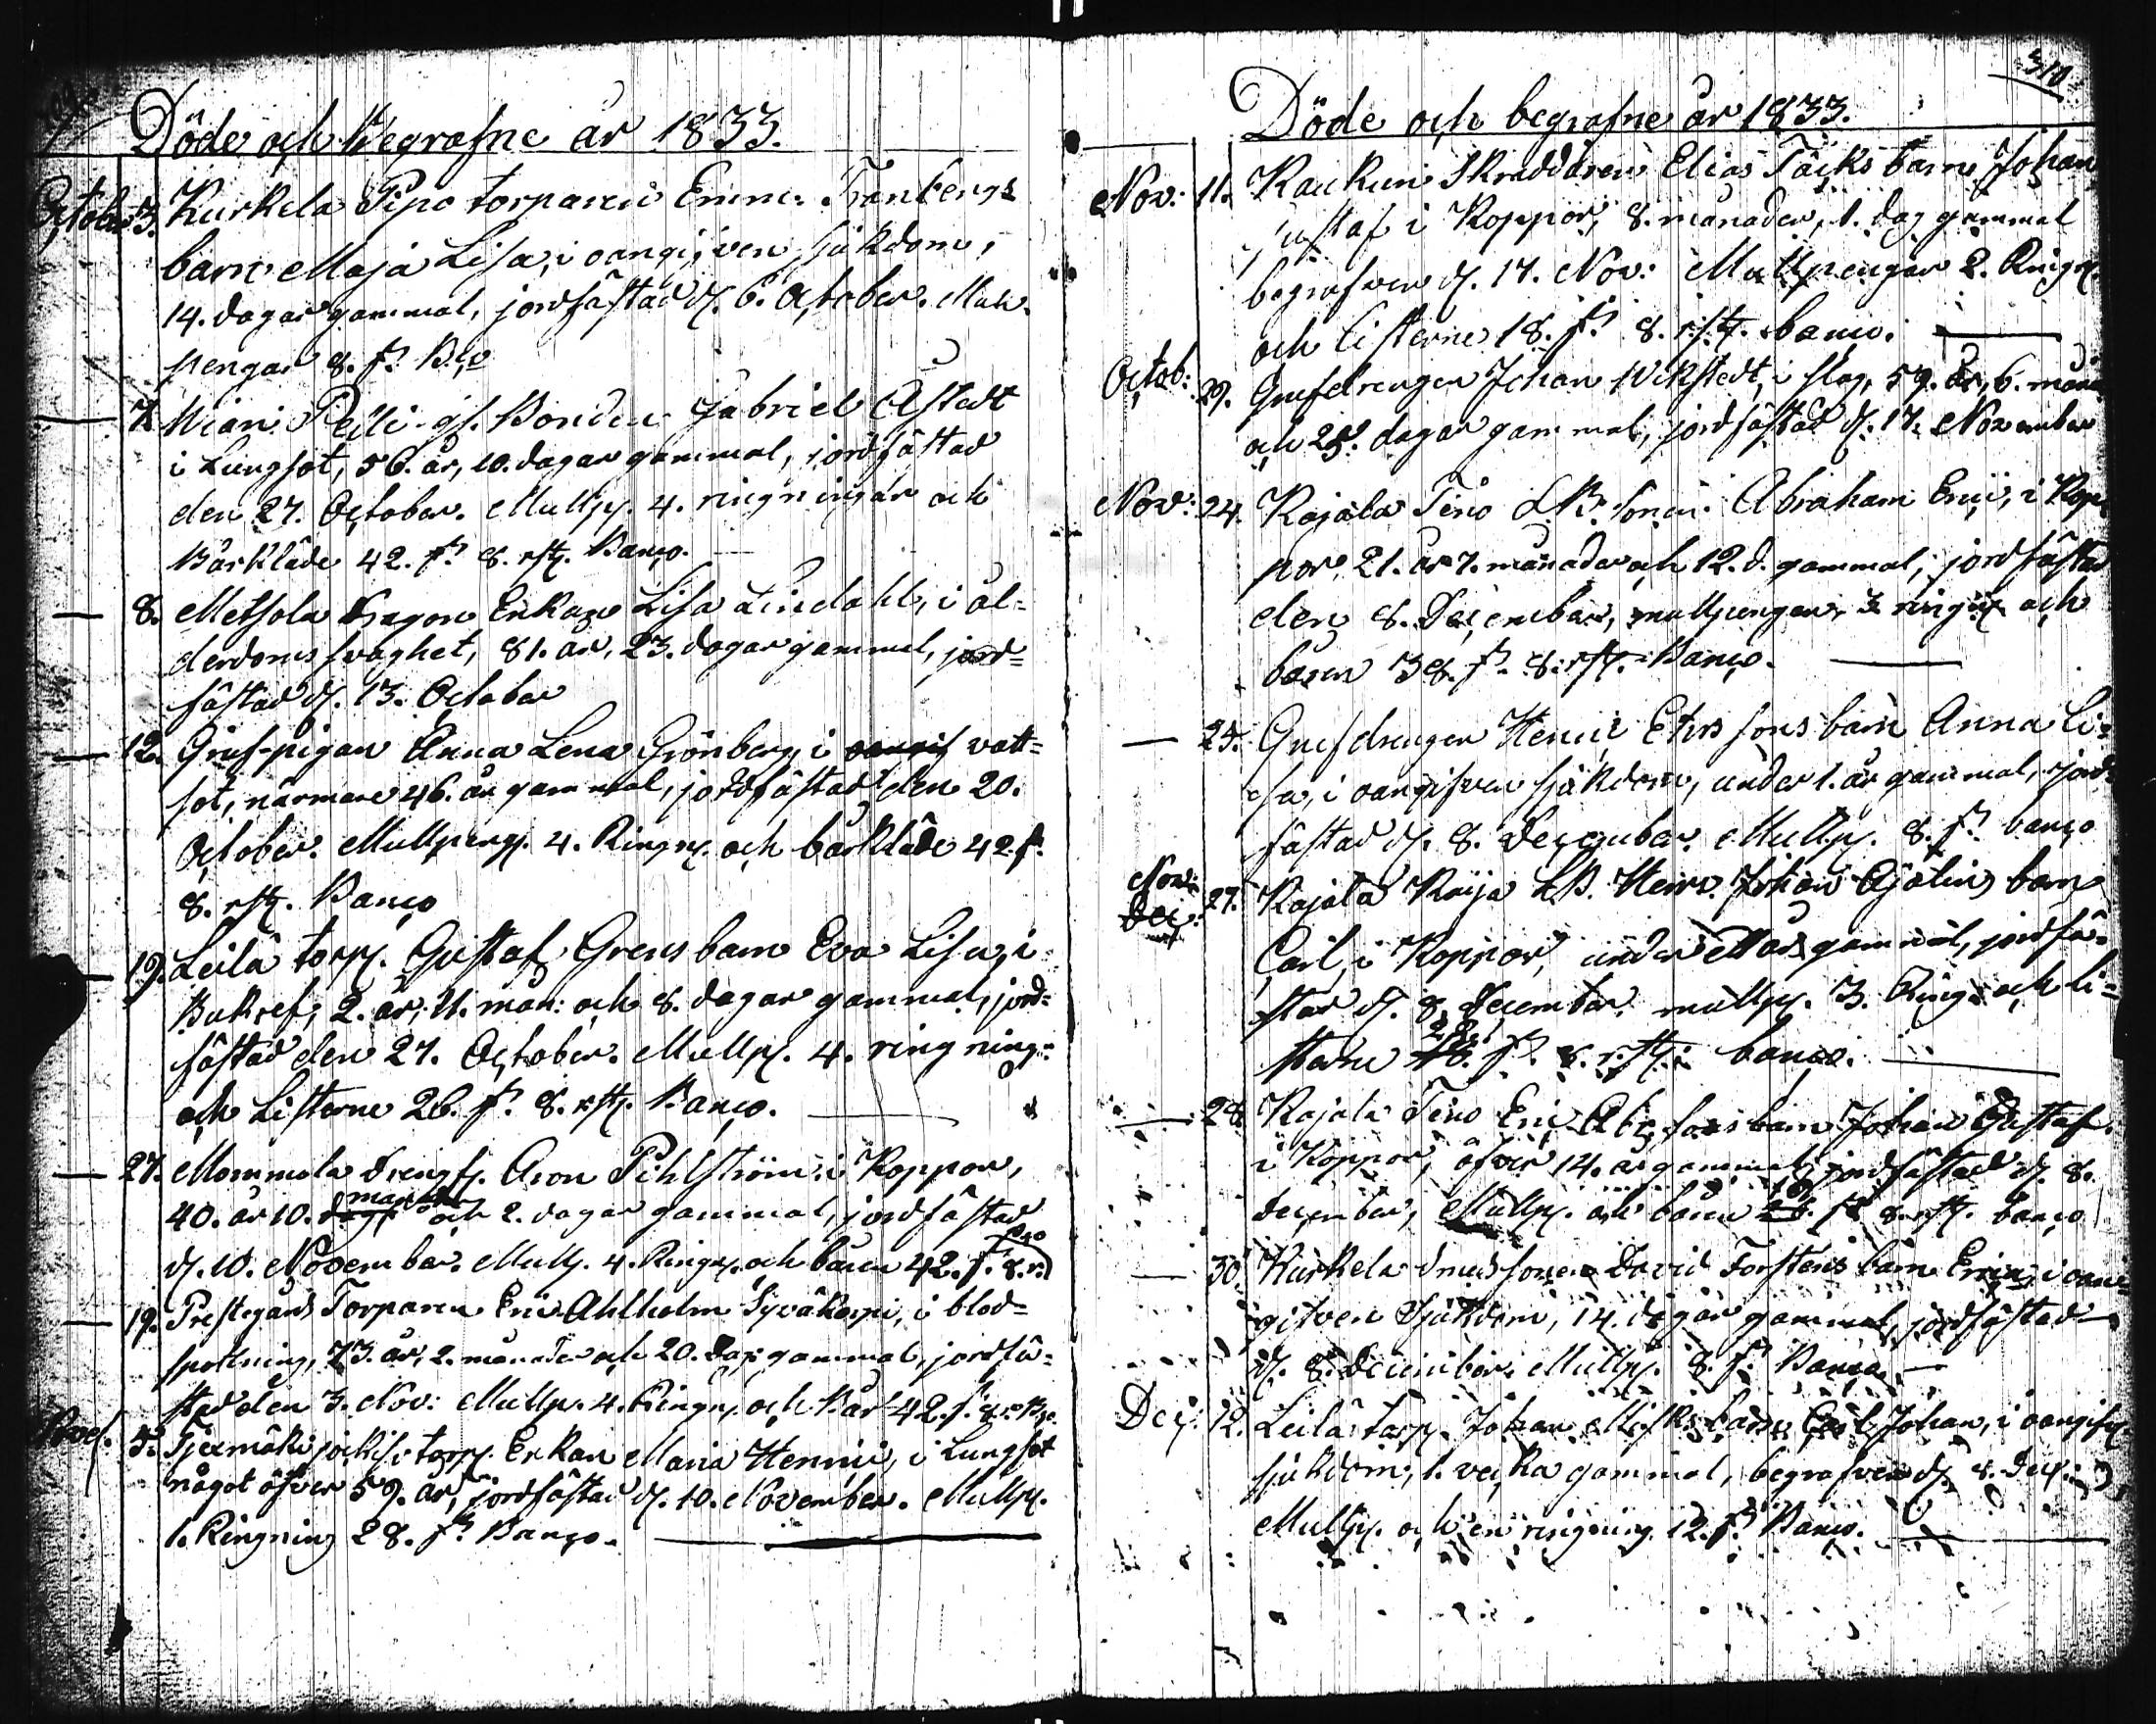 Döde och Begrafne år 1833.
October 3. Kurkela Pipo torparen Tranbergs
barn Maja Lisa, i oangifven sjukdom,
14. dagar gammal, jordfästad d. 6. October. Mull-
pengar 8. s. Bco
— 7. Pelli gl. Bonden Gabriel Åstedt
i Lungsot, 56. år, 10. dagar gammal, jordfästad
den 27. October. Mullp. 4. ringningar och
Bårkläde 42. s. 8. rst. Banco.
— 8. Metsola Enkan Lisa Lindahl, i ål-
derdoms svaghet, 81. år, 23. dagar gammal, jord-
fästad d. 13. October
— 12. Gruf-pigan Anna Lena Grönberg, i vatt-
sot, närmare 46. år gammal, jordfästad den 20.
October. Mullpeng. 4. Ringn. och bårkläde 42. s.
8. rst. Banco
— 19. Leilä torp. Gustaf Grens barn Eva Lisa, i
Bukref, 2. år, 11. mån: och 8. dagar gammal, jord-
fästad den 27. October. Mullp. 4. ringning:
och Listerne 26. s. 8. rst. Banco.
— 27. Mommola Drengen Aron Pihlström i Koppor,
40. år 10. månader och 2. dagar gammal, jordfästad
d. 10. November. Mullp. 4. Ringn. och båren 42. s. 8. r. Bco
— 19. Prestegårds Torparen Eric Ahlholm Syväkorpi, i blod-
spottning, 73. år, 2. månader och 20. dag. gammal, jordfä-
stad den 3. Nov: Mullp. 4. Ringn. och Bår 42. s. 8. r. Bco.
Nov. 3. torp. Enkan Maria Henric, i Lungsot
något öfver 59. år, jordfästad d. 10. November. Mullp.
1. Ringning 28. s. Banco.
310
Döde och begrafne år 1833.
Nov: 11. Raukun Skräddaren Elias Täcks barn Johan
Gustaf i Koppor, 8. månader, 1. dag gammal
begrafven d. 17. Nov: Mullpengar 2. Ringn.
och Listerne 18. s. 8. rst. banco.
Octob: 29. Grufdrengen Johan Wikstedt, i slag, 59. år, 6. måna
och 25. dagar gammal, jordfästad d. 17. November
Nov: 24. Kajala Tino L.B. Sonen Abraham Eric, i Kop-
por, 21. år 7. månader och 12. d. gammal, jordfästad
den 8. December, mullpengar, 3 ringn. och
båren 38. s. 8. rst. Banco.
— 25. Grufdrengen Henric Ehrssons barn Anna Li-
sa, i oangifven sjukdom, under 1. år gammal, jord-
fästad d. 8. December. Mullp. 8. s. banco
Nov: Dec: 27. Kajala Raija L.B. Henr. Johan barn
Carl, i Koppor, under ett år gammal, jordfä-
stad d. 8. December. mullp. 3. Ring. och li-
sterne 22. s. 8. rst. banco.
— 28. Kajala Tino Eric Abr.sons barn Johan Gustaf
i Koppor, öfver 14. år gammal, jordfästad d. 8.
December, Mullp. och båren s. 8. rst. banco
— 30. Kurkela David Forstens barn Eric, i oan-
gifven Sjukdom, 14. dagar gammal, jordfästad
d. 8. December. Mullp. 8. s. Banco. —
Dec: 12. Leilä Torp. Johan barn Carl Johan, i oangif.
sjukdom, 1. vecka gammal, begrafven d. 8. Dec:
Mullp. och en ringning 12. s. Banco.